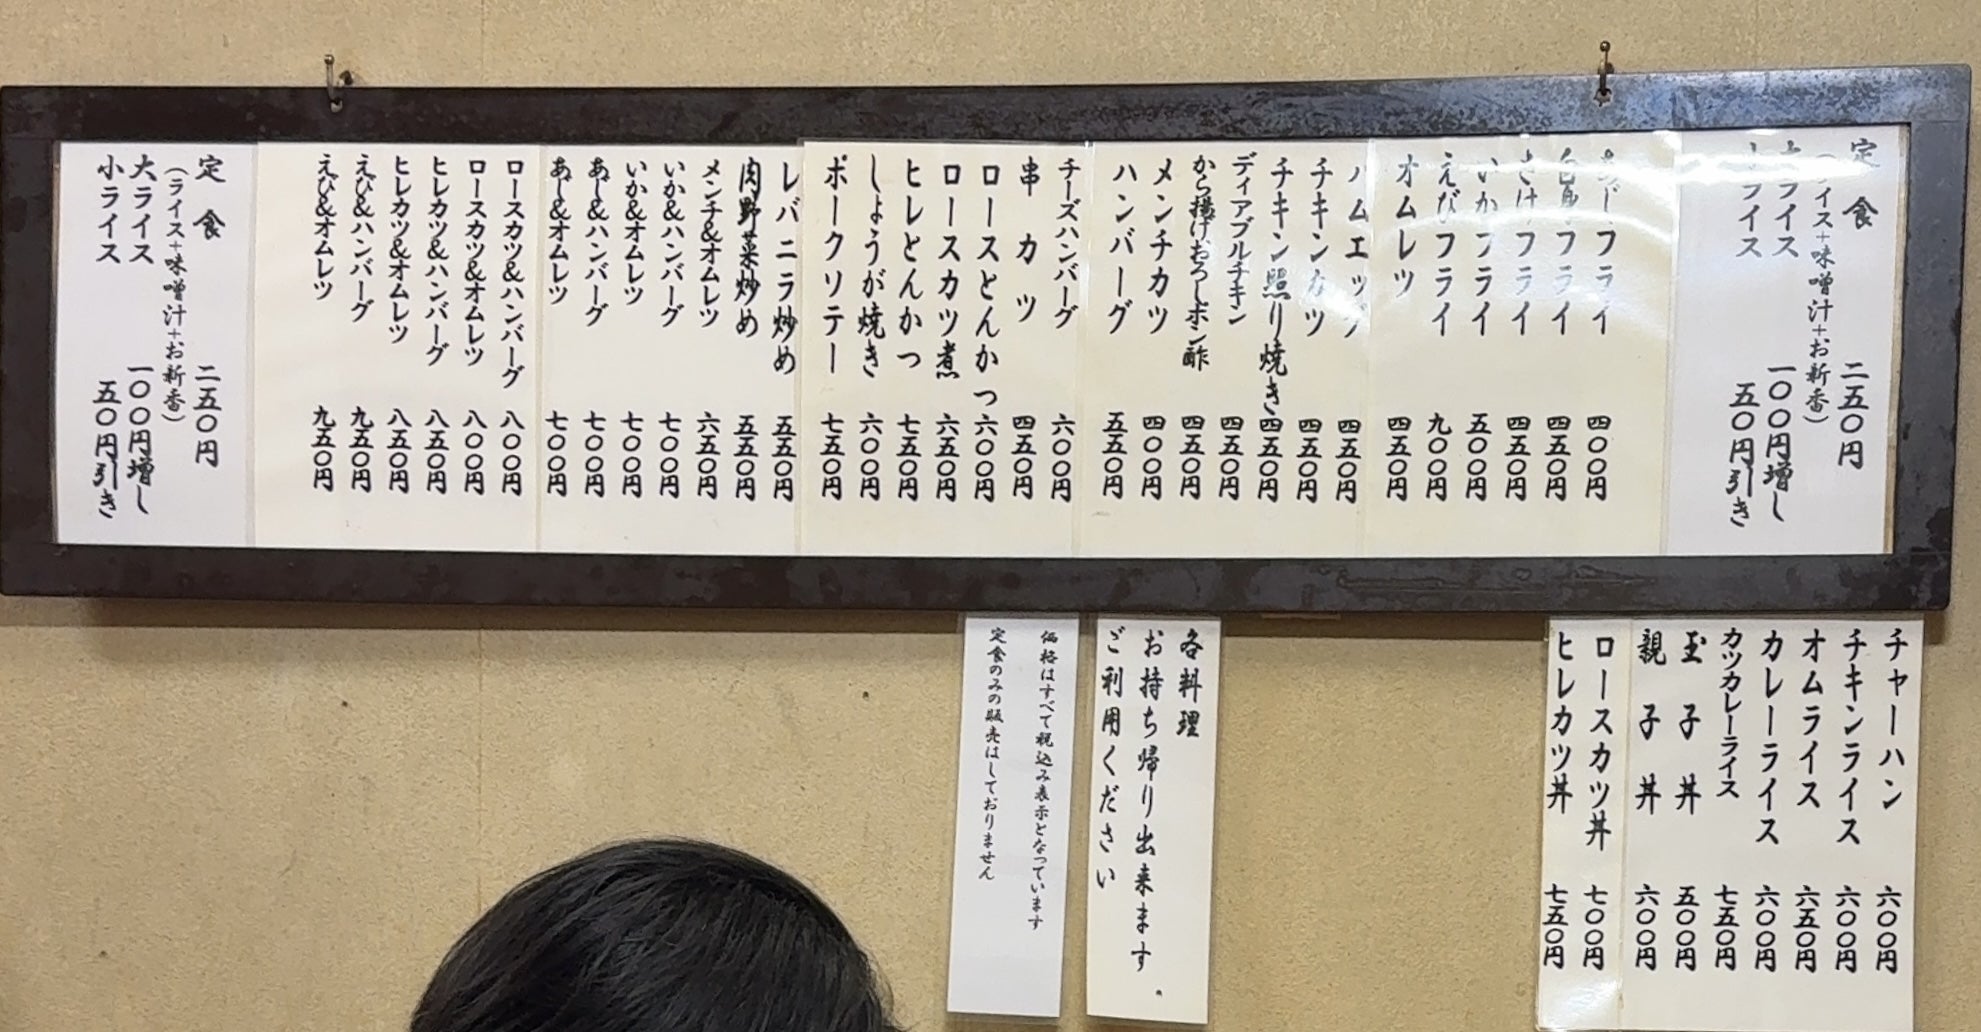 定食 二五〇円
(ライス+味噌汁+お新香)
大ライス 一〇〇円増し
小ライス 五〇円引き
あじフライ 四〇〇円
白身フライ 四五〇円
さけフライ 四五〇円
いかフライ 五〇〇円
えびフライ 九〇〇円
オムレツ 四五〇円
ハムエッグ 四五〇円
チキンカツ 四五〇円
チキン照り焼き 四五〇円
ディアブルチキン 四五〇円
から揚げおろしポン酢 四五〇円
メンチカツ 四〇〇円
ハンバーグ 五五〇円
チーズハンバーグ 六〇〇円
串カツ 四五〇円
ロースとんかつ 六〇〇円
ロースカツ煮 六五〇円
ヒレとんかつ 七五〇円
しょうが焼き 六〇〇円
ポークソテー 七五〇円
レバニラ炒め 五五〇円
肉野菜炒め 五五〇円
メンチ&オムレツ 六五〇円
いか&ハンバーグ 七〇〇円
いか&オムレツ 七〇〇円
あじ&ハンバーグ 七〇〇円
あじ&オムレツ 七〇〇円
ロースカツ&ハンバーグ 八〇〇円
ロースカツ&オムレツ 八〇〇円
ヒレカツ&ハンバーグ 八五〇円
ヒレカツ&オムレツ 八五〇円
えび&ハンバーグ 九五〇円
えび&オムレツ 九五〇円
定食 二五〇円
(ライス+味噌汁+お新香)
大ライス 一〇〇円増し
小ライス 五〇円引き
チャーハン 六〇〇円
チキンライス 六〇〇円
オムライス 六五〇円
カレーライス 六〇〇円
カツカレーライス 七五〇円
玉子丼 五〇〇円
親子丼 六〇〇円
ロースカツ丼 七〇〇円
ヒレカツ丼 七五〇円
各料理
お持ち帰り出来ます。
ご利用ください
価格はすべて税込み表示となっています
定食のみの販売はしておりません